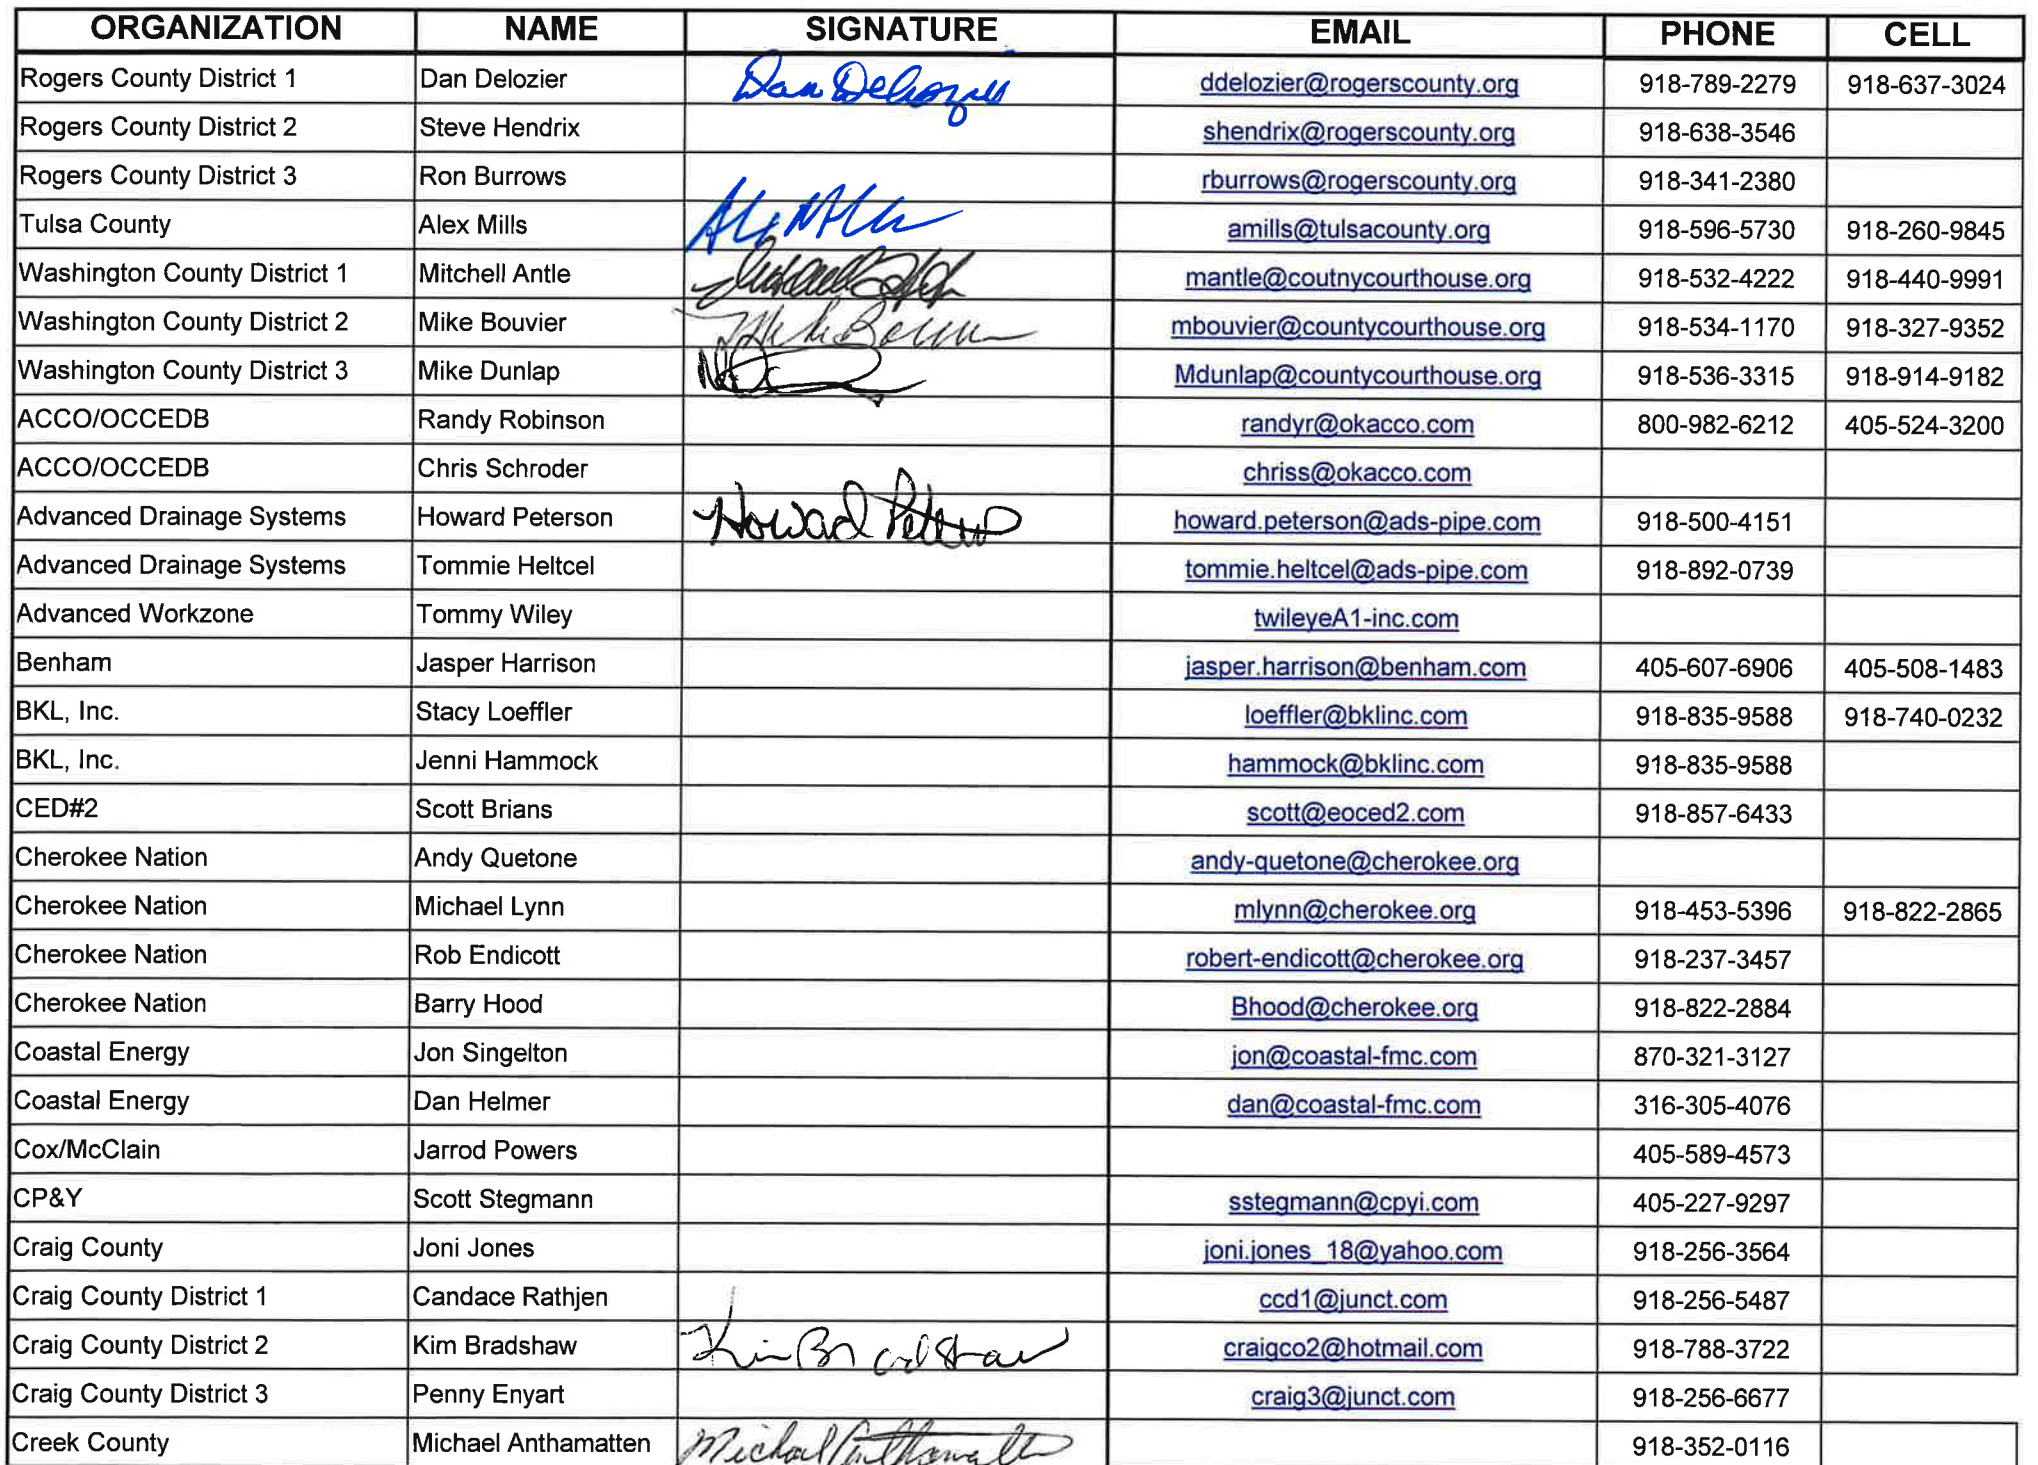 ORGANIZATION NAME SIGNATURE EMAIL PHONE CELL
Rogers County District 1 Dan Delozier Dan Delozier ddelozier@rogerscounty.org 918-789-2279 918-637-3024
Rogers County District 2 Steve Hendrix shendrix@rogerscounty.org 918-638-3546
Rogers County District 3 Ron Burrows rburrows@rogerscounty.org 918-341-2380
Tulsa County Alex Mills amills@tulsacounty.org 918-596-5730 918-260-9845
Washington County District 1 Mitchell Antle mantle@coutnycourthouse.org 918-532-4222 918-440-9991
Washington County District 2 Mike Bouvier mbouvier@countycourthouse.org 918-534-1170 918-327-9352
Washington County District 3 Mike Dunlap Mdunlap@countycourthouse.org 918-536-3315 918-914-9182
ACCO/OCCEDB Randy Robinson randyr@okacco.com 800-982-6212 405-524-3200
ACCO/OCCEDB Chris Schroder chriss@okacco.com
Advanced Drainage Systems Howard Peterson Howard Peterson howard.peterson@ads-pipe.com 918-500-4151
Advanced Drainage Systems Tommie Heltcel tommie.heltcel@ads-pipe.com 918-892-0739
Advanced Workzone Tommy Wiley twileyeA1-inc.com
Benham Jasper Harrison jasper.harrison@benham.com 405-607-6906 405-508-1483
BKL, Inc. Stacy Loeffler loeffler@bklinc.com 918-835-9588 918-740-0232
BKL, Inc. Jenni Hammock hammock@bklinc.com 918-835-9588
CED#2 Scott Brians scott@eoced2.com 918-857-6433
Cherokee Nation Andy Quetone andy-quetone@cherokee.org
Cherokee Nation Michael Lynn mlynn@cherokee.org 918-453-5396 918-822-2865
Cherokee Nation Rob Endicott robert-endicott@cherokee.org 918-237-3457
Cherokee Nation Barry Hood Bhood@cherokee.org 918-822-2884
Coastal Energy Jon Singelton jon@coastal-fmc.com 870-321-3127
Coastal Energy Dan Helmer dan@coastal-fmc.com 316-305-4076
Cox/McClain Jarrod Powers 405-589-4573
CP&Y Scott Stegmann sstegmann@cpyi.com 405-227-9297
Craig County Joni Jones joni.jones_18@yahoo.com 918-256-3564
Craig County District 1 Candace Rathjen ccd1@junct.com 918-256-5487
Craig County District 2 Kim Bradshaw Kim Bradshaw craigco2@hotmail.com 918-788-3722
Craig County District 3 Penny Enyart craig3@junct.com 918-256-6677
Creek County Michael Anthamatten Michael Anthamatten 918-352-0116